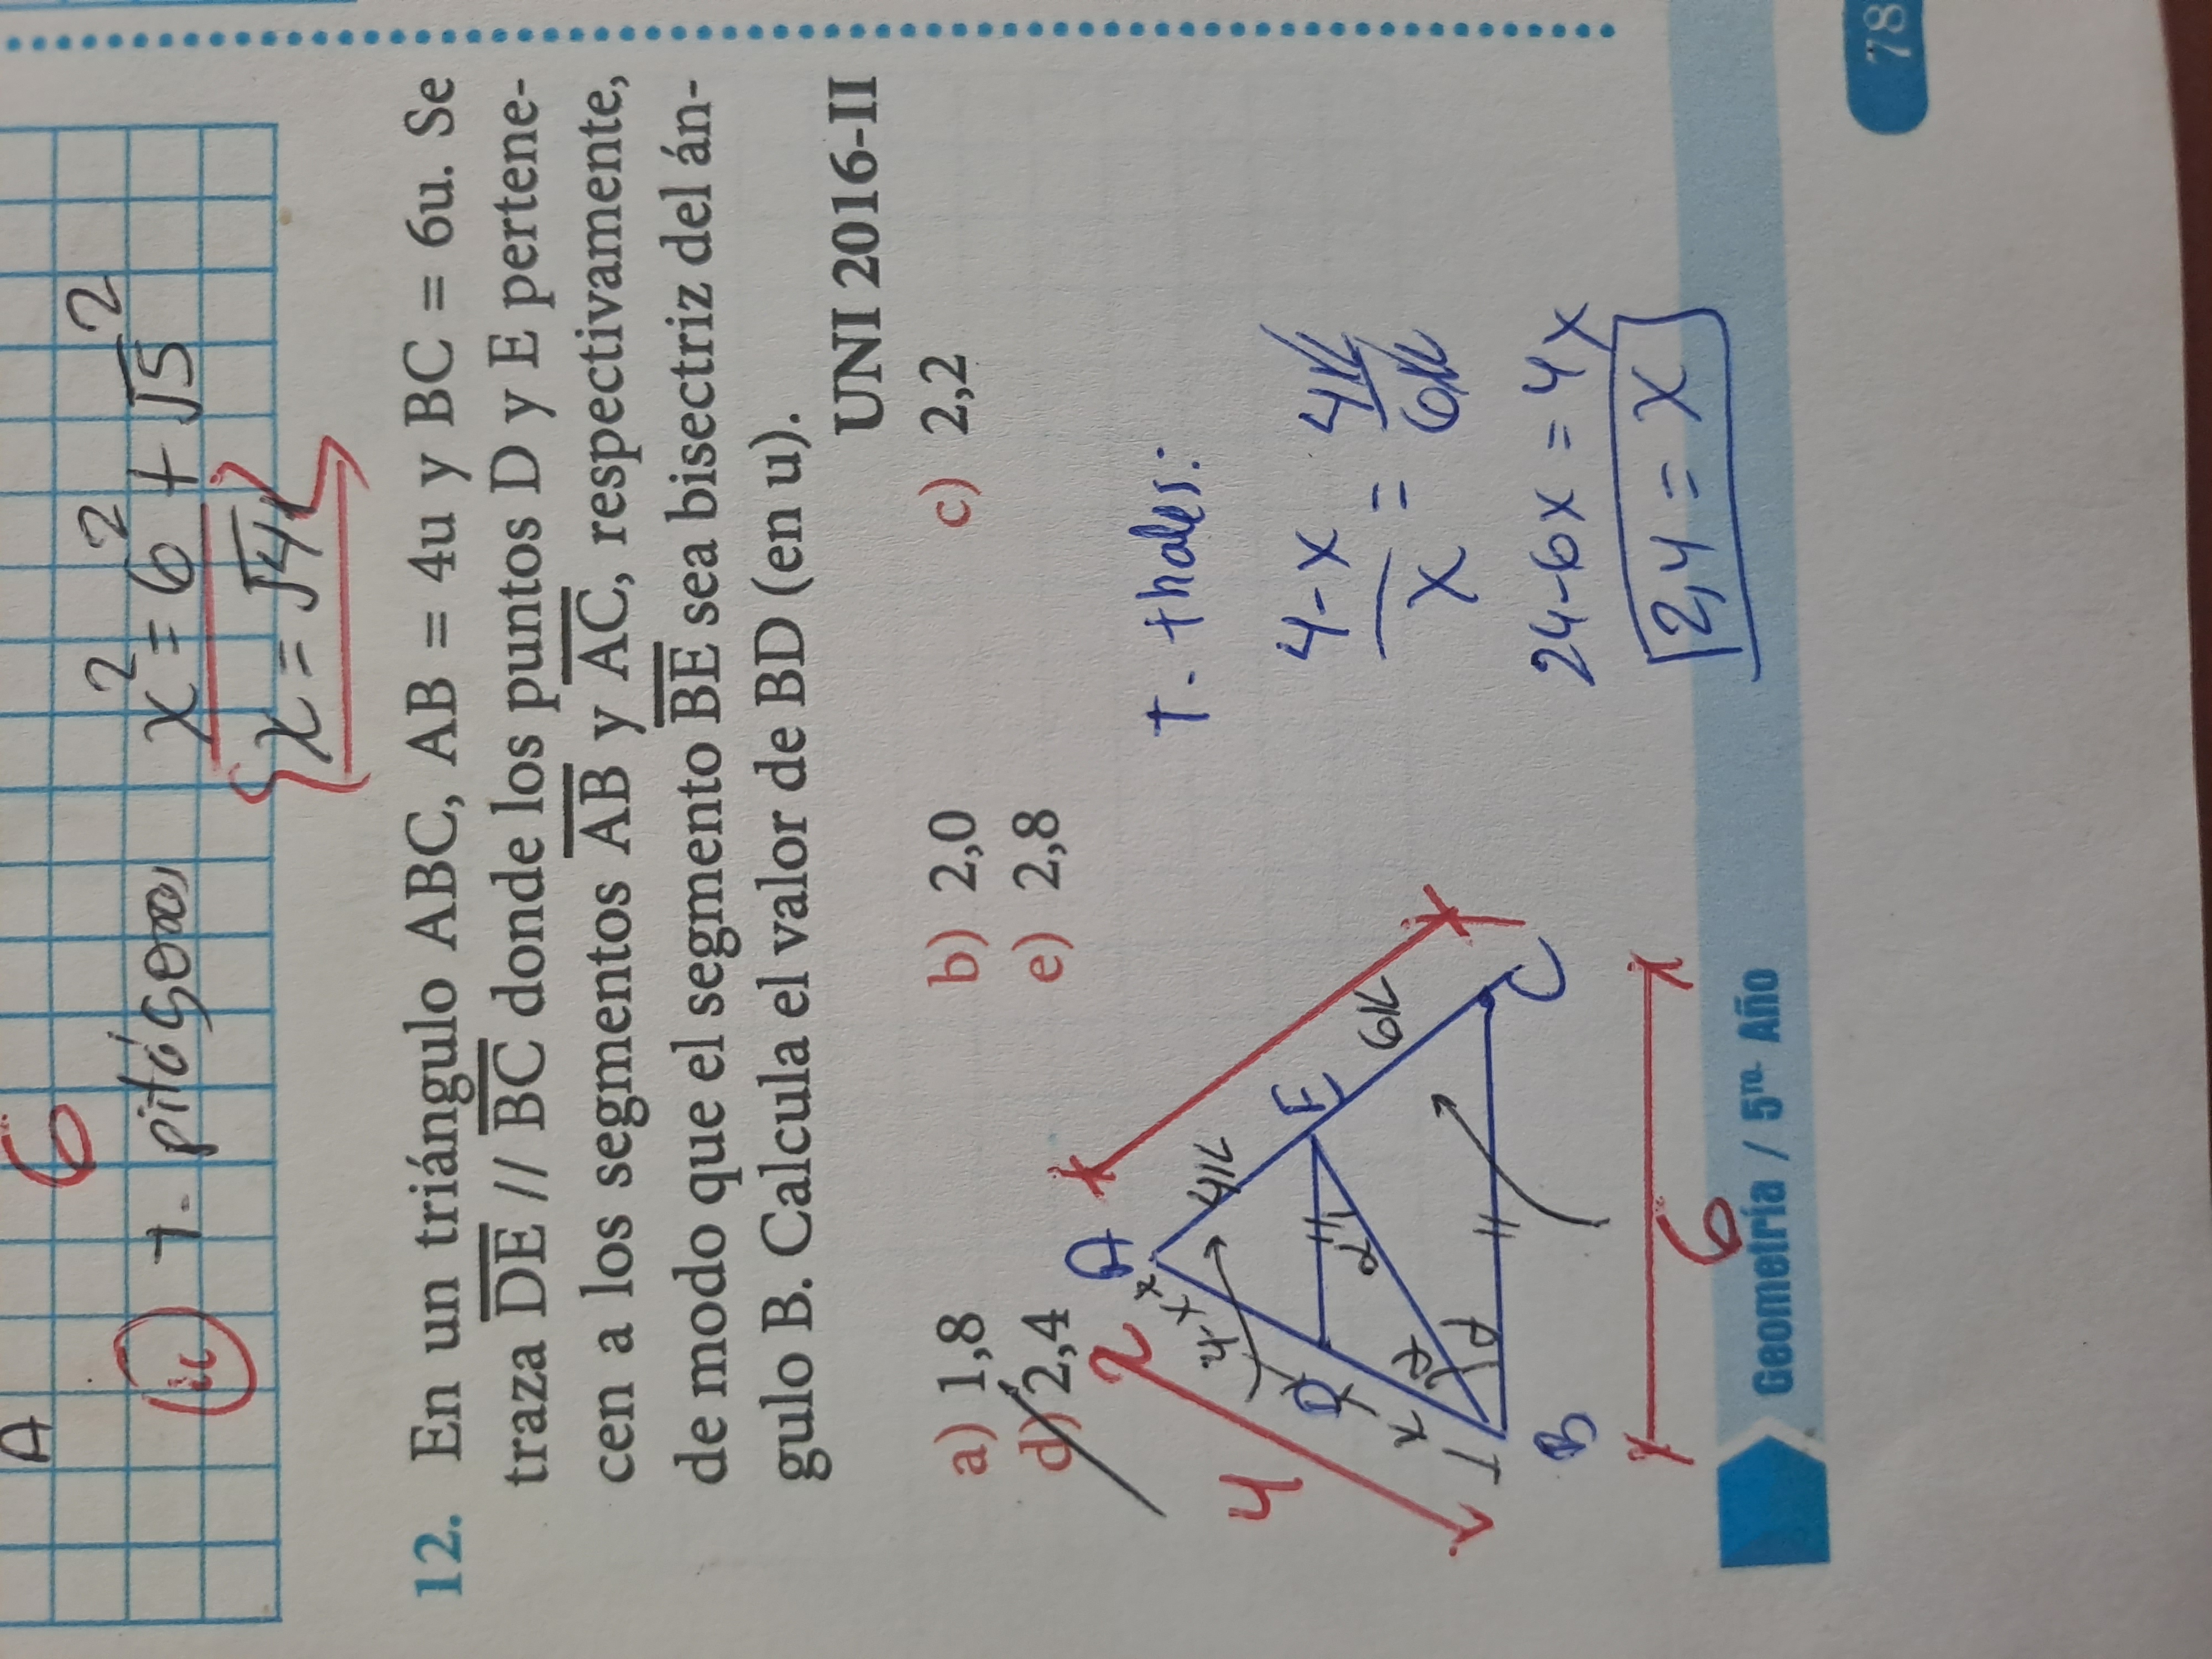 A
6
ii T. pitágoras x² = 6² + √5²
x = √41
12. En un triángulo ABC, AB = 4u y BC = 6u. Se
traza DE // BC donde los puntos D y E pertene-
cen a los segmentos AB y AC, respectivamente,
de modo que el segmento BE sea bisectriz del án-
gulo B. Calcula el valor de BD (en u).
UNI 2016-II
a) 1,8 b) 2,0 c) 2,2
d) 2,4 e) 2,8
A
4-x 4k
4
D E
α
x 6k
α
α
B C
6
T. thales:
4-x / x = 4k / 6k
24-6x = 4x
2,4 = x
Geometría / 5ro. Año
78